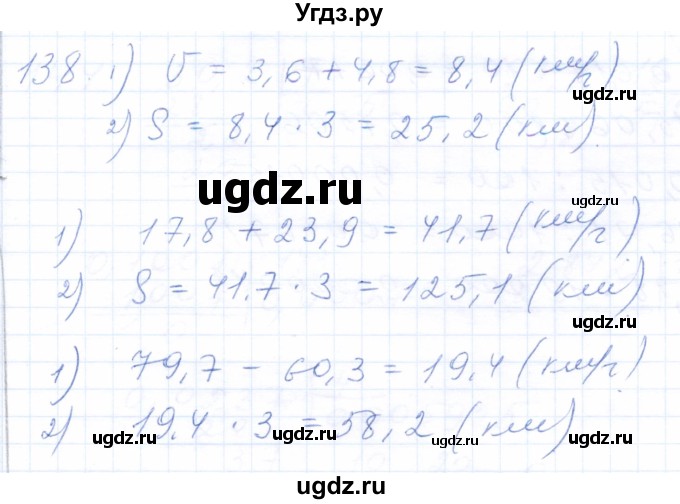 Угдз.ру
138. 1) V = 3,6 + 4,8 = 8,4 (км/ч)
ugdz.ru
2) S = 8,4 · 3 = 25,2 (км).
ugdz.ru
ugdz.ru
1) 17,8 + 23,9 = 41,7 (км/ч)
ugdz.ru
2) S = 41,7 · 3 = 125,1 (км)
ugdz.ru
1) 79,7 - 60,3 = 19,4 (км/ч)
ugdz.ru
2) 19,4 · 3 = 58,2 (км)
ugdz.ru ugdz.ru ugdz.ru
ugdz.ru